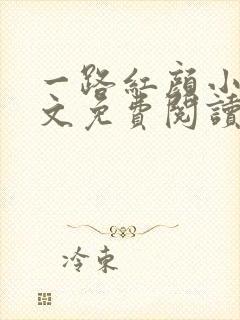 一路红颜小
文免费阅读
冷束